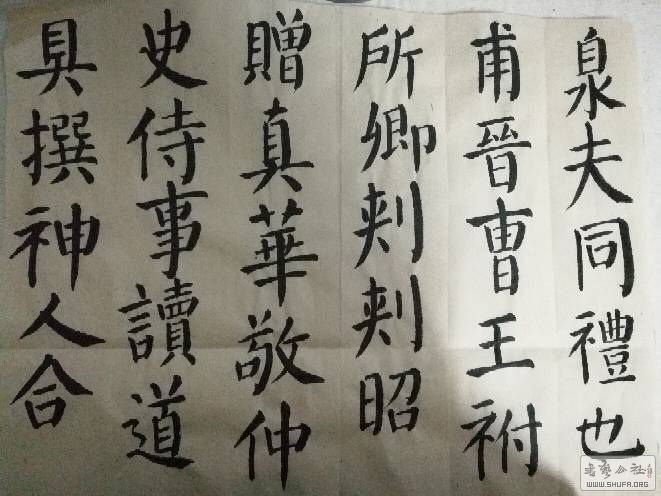 泉夫同禮也
甫晉曺王祔
所卿刾刾昭
贈真華敬仲
史侍事讀道
具撰神人合
书艺公社
WWW.SHUFA.ORG